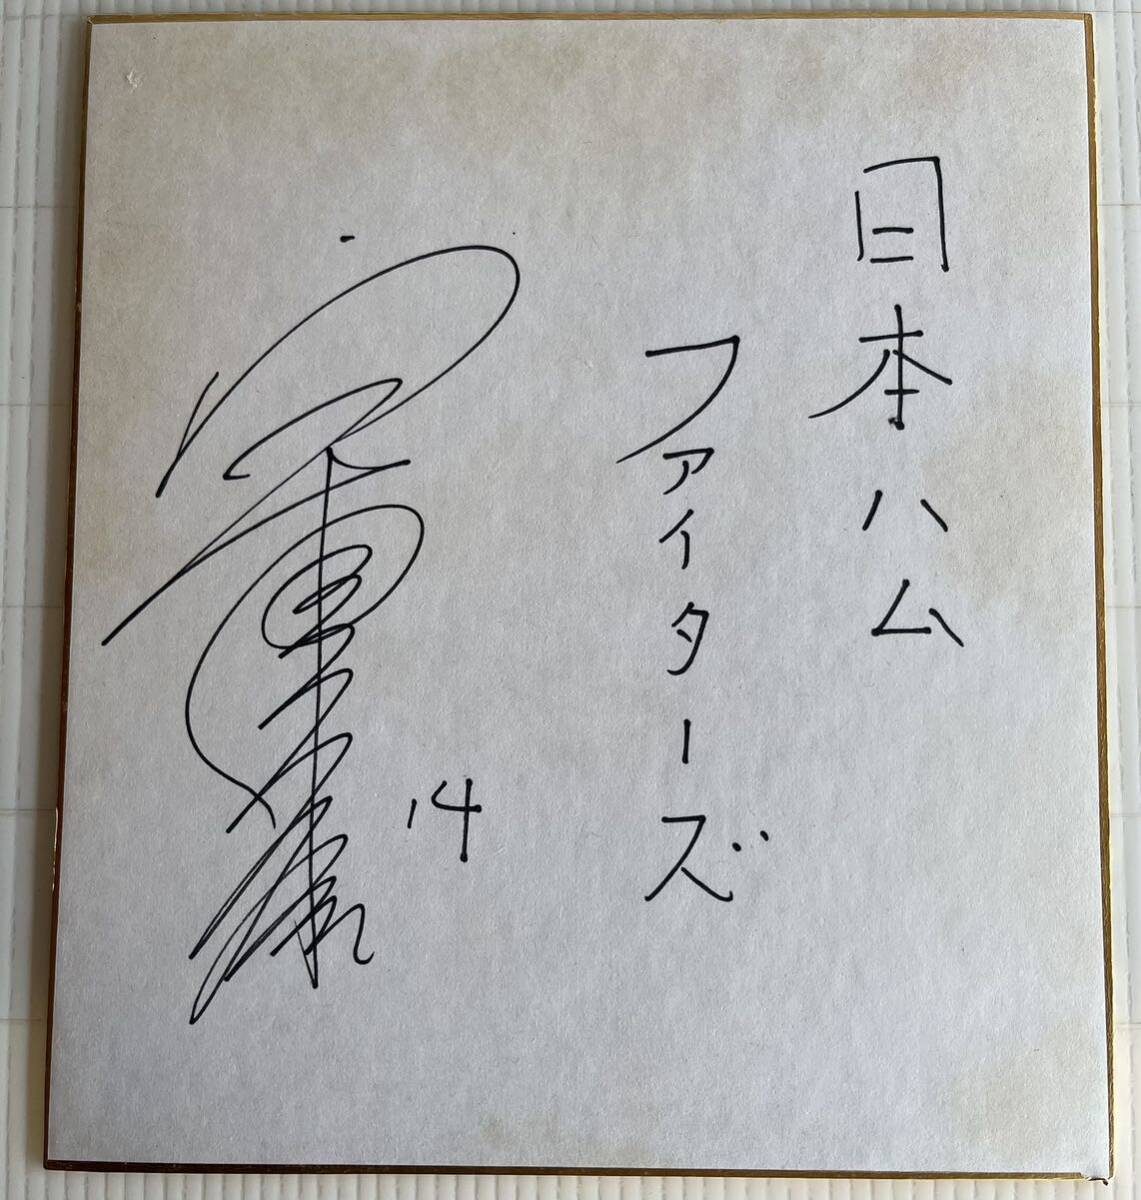 日本ハム
ファイターズ
14